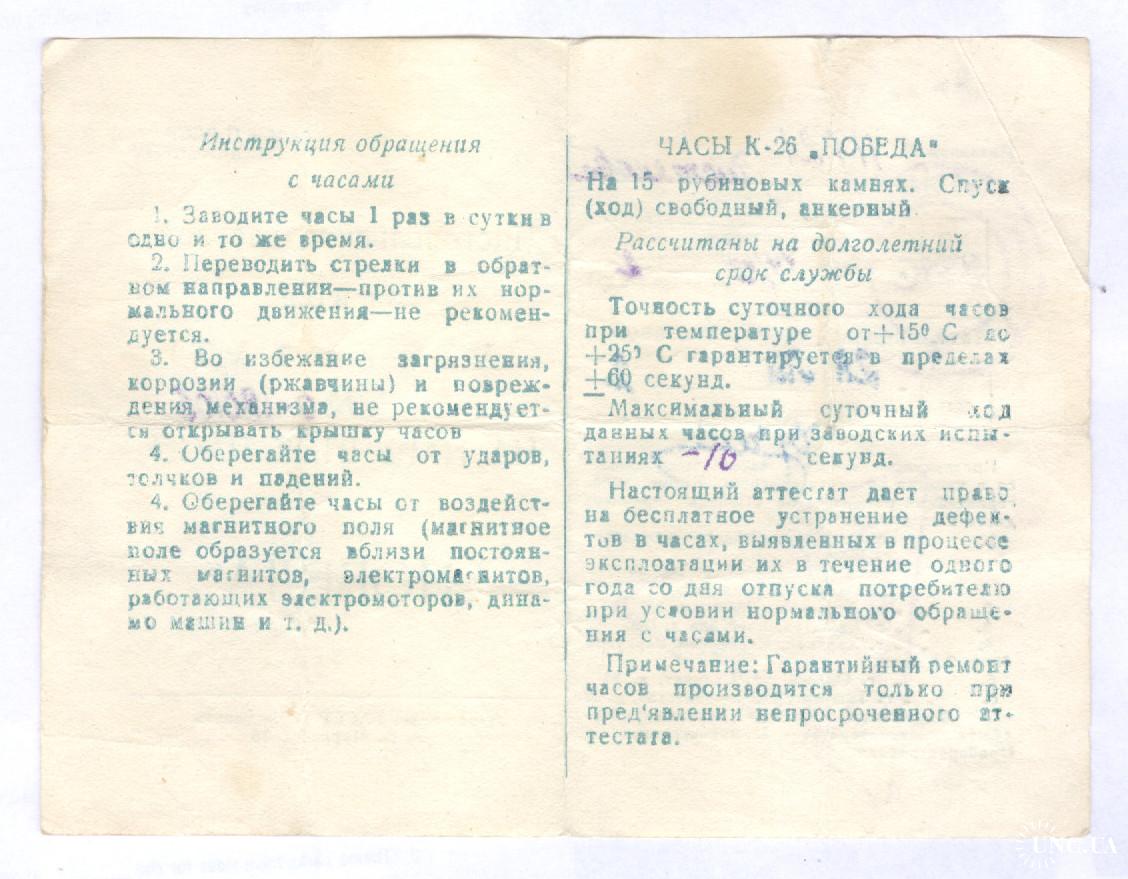 Инструкция обращения
с часами
1. Заводите часы 1 раз в сутки в
одно и то же время.
2. Переводить стрелки в обрат-
ном направлении—против их нор-
мального движения—не рекомен-
дуется.
3. Во избежание загрязнения,
коррозии (ржавчины) и повреж-
дения механизма, не рекомендует-
ся открывать крышку часов
4. Оберегайте часы от ударов,
толчков и падений.
4. Оберегайте часы от воздейст-
вия магнитного поля (магнитное
поле образуется вблизи постоян-
ных магнитов, электромагнитов,
работающих электромоторов, дина-
мо машин и т. д.).
ЧАСЫ К-26 „ПОБЕДА"
На 15 рубиновых камнях. Спуск
(ход) свободный, анкерный
Рассчитаны на долголетний
срок службы
Точность суточного хода часов
при температуре от+15⁰ С до
+25⁰ С гарантируется в пределах
±60 секунд.
Максимальный суточный ход
данных часов при заводских испы-
таниях -10 секунд.
Настоящий аттестат дает право
на бесплатное устранение дефек-
тов в часах, выявленных в процессе
эксплоатации их в течение одного
года со дня отпуска потребителю
при условии нормального обраще-
ния с часами.
Примечание: Гарантийный ремонт
часов производится только при
пред'явлении непросроченного ат-
тестата.
UNC.UA